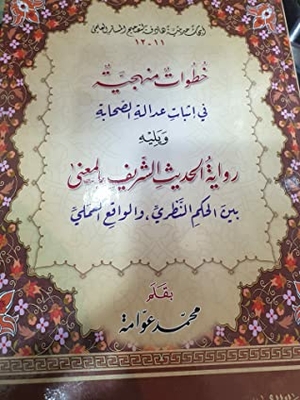 أبحاث حديثية هادفة لتصحيح المسار العلمي
١١-١٢
خطوات منهجية
في إثبات عدالة الصحابة
ويليه
رواية الحديث الشريف بالمعنى
بين الحكم النظري، والواقع العملي
بقلم
محمد عوامة